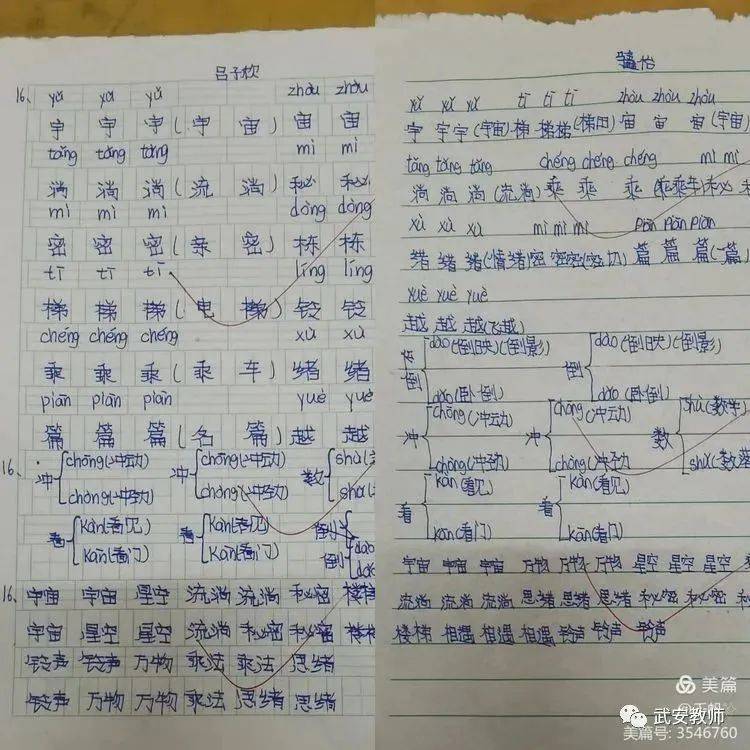 吕子欣
16、 yǔ yǔ yǔ zhòu zhòu
宇 宇 宇 ( 宇 宙 ) 宙 宙
tǎng tǎng tǎng mì mì
淌 淌 淌 ( 流 淌 ) 秘 秘
mì mì mì dòng dòng
密 密 密 ( 亲 密 ) 栋 栋
tī tī tī líng líng
梯 梯 梯 ( 电 梯 ) 铃 铃
chéng chéng chéng xù xù
乘 乘 乘 ( 乘 车 ) 绪 绪
piān piān piān yuè yuè
篇 篇 篇 ( 名 篇 ) 越 越
16、
冲 chōng(冲动) chòng(冲劲) 冲 chōng(冲动) chòng(冲劲) 数 shù( shǔ(
看 kàn(看见) kān(看门) 看 kàn(看见) kān(看门) 倒 倒 dào
16、 宇宙 宇宙 星空 流淌 流淌 秘密 楼梯
宇宙 星空 星空 流淌 秘密 秘密 楼梯
铃声 铃声 万物 乘法 乘法 思绪
铃声 万物 万物 乘法 思绪 思绪
怡
yǔ yǔ yǔ tī tī tī zhòu zhòu zhòu
宇 宇 宇(宇宙) 梯 梯梯(梯田) 宙 宙 宙(宇宙)
tǎng tǎng tǎng chéng chéng chéng mì mì
淌 淌 淌(流淌) 乘 乘 乘(乘车) 秘
xù xù xù mì mì mì piān piān piān
绪 绪 绪(情绪)密 密密(密切) 篇 篇 篇(一篇)
yuè yuè yuè
越 越 越(飞越)
倒 dào(倒映)(倒影) dǎo(卧倒) 倒 dào(倒映)(倒影) dǎo(卧倒)
冲 chōng(冲动) chòng(冲劲) 冲 chōng(冲动) chòng(冲劲) 数 shù(数学) shǔ(数落
看 kàn(看见) kān(看门) kàn(看见) kān(看门)
宇宙 宇宙 宇宙 万物 万物 万物 星空 星空 星空
流淌 流淌 流淌 思绪 思绪 思绪 秘密 秘密 秘密
楼梯 相遇 相遇 相遇 铃声 铃声 铃声
美篇
武安教师
美篇号: 3546760